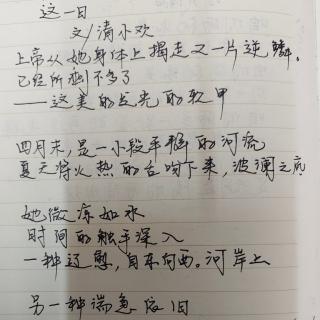 这一日
文/清小欢
上帝从她身体上揭走又一片逆鳞。
已经所剩不多了
——这美的发光的软甲
四月末,是一小段平稳的河流
夏天将火热的 吻下来,波澜之
她微冻如水
时间的触手深入
一种过 ,自东向西。河岸上
另一种湍急依旧